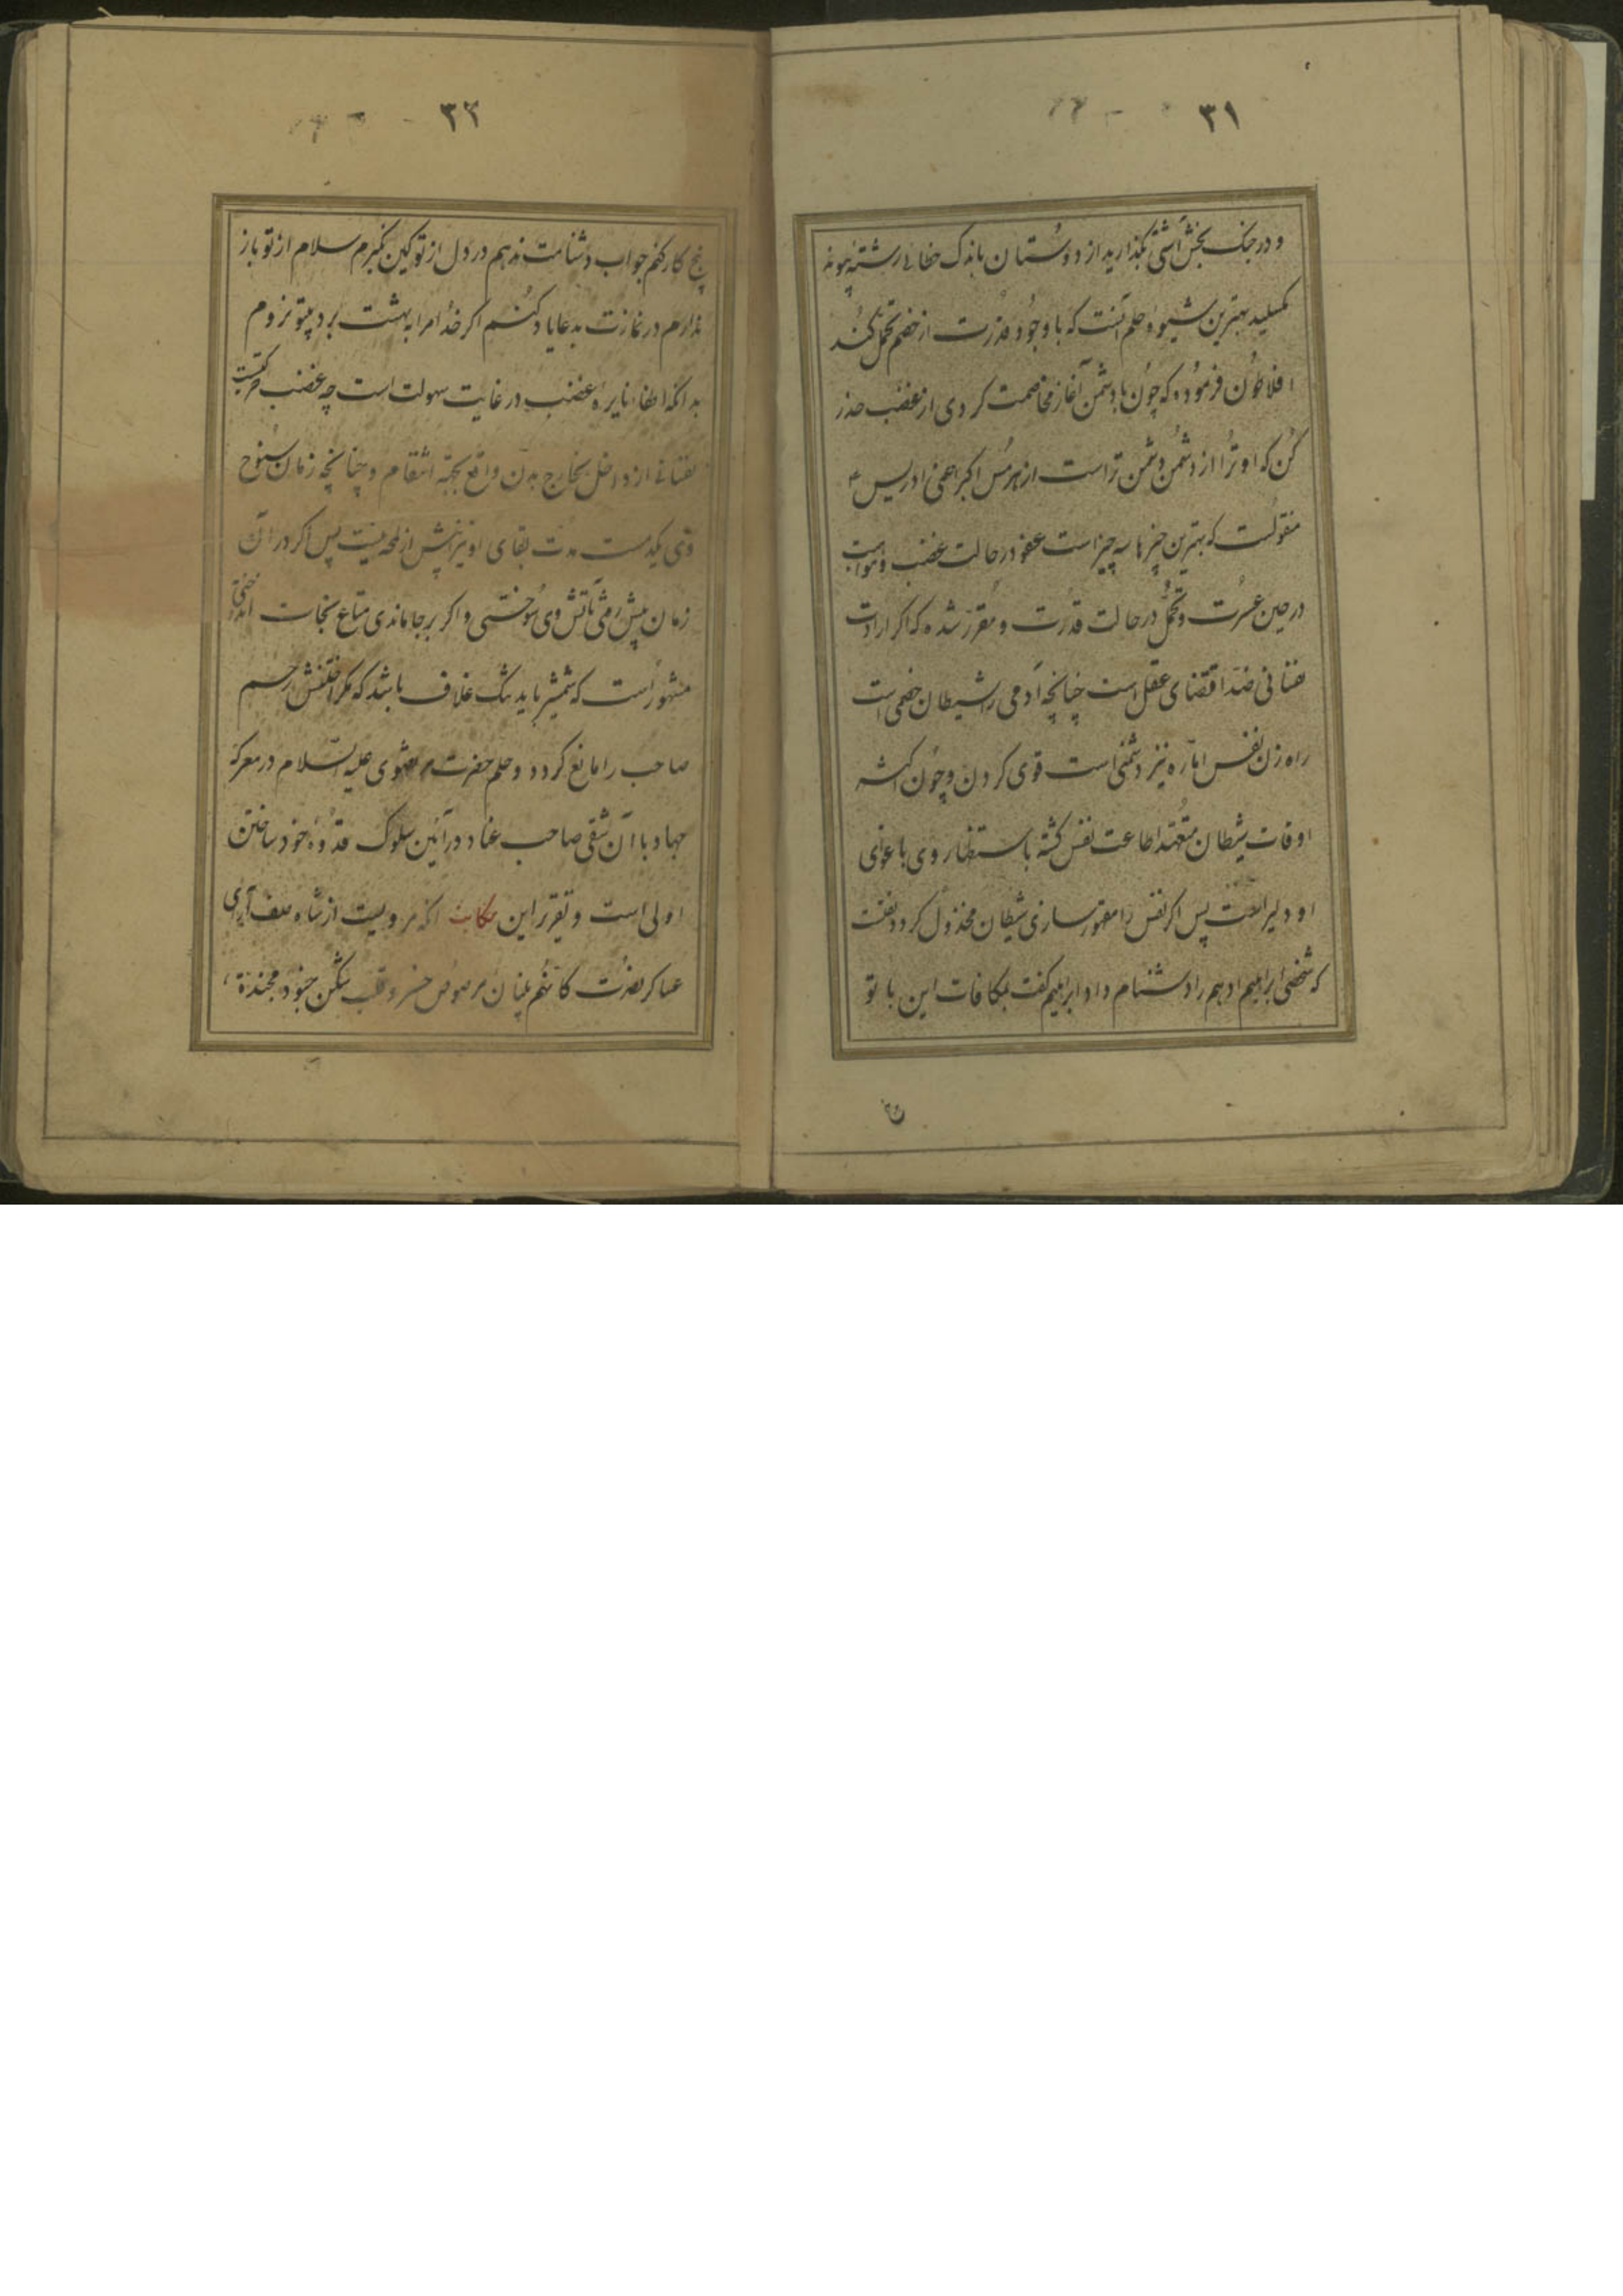 ۳۱
و در جنک بخش آشتی بگذارید از دوستان باندک خطائی رشته پیوند
مکسلید بهترین شیوه حلم آنست که با وجود قدرت از خصم تحمل کنند
افلاطون فرموده که چون با دشمن آغاز مخاصمت کردی از غضب حذر
کن که او ترا از دشمن دشمن تر است از هرمس اکبر اعنی ادریس ع
منقولست که بهترین چیزها سه چیز است عفو در حالت غضب و مواسات
در حین عسرت و تحمل در حالت قدرت و مقرر شده که اکر ارادت
نفسانی ضد اقتضای عقل است چنانچه آدمی را شیطان خصمی است
راه زن نفس اماره نیز دشمنی است قوی کردن و چون اکثر
اوقات شیطان متعهد اطاعت نفس کشته باستظهار وی باغوای
او دلیر است پس اکر نفس را مقهور سازی شیطان مخذول کردد
که شخصی ابراهیم ادهم را دشنام داد ابراهیم کفت بمکافات این با تو
۳۲
پنج کار نکنم جواب دشنامت ندهم در دل از تو کین نگیرم سلام از تو باز
ندارم در نمازت بدعا یاد کنم اکر خدا مرا به بهشت برد بیتو نروم
بدانکه اطفاء نایره غضب در غایت سهولت است چه غضب حرکتیست
نفسانی از داخل بخارج بدن واقع بجهة انتقام و چنانچه زمان سنوح
وی یکدمست مدت بقای او نیز بیش از لمحه نیست پس اکر در آن
زمان پیش رفتی بآتش وی سوختی و اکر بر جا ماندی متاع نجات اندوختی
مشهور است که شمشیر باید تنک غلاف باشد که مکر آختنش رحم
صاحب را مانع کردد و حلم حضرت مرتضوی علیه السلام در معرکه
جهاد با آن شقی صاحب عناد در آئین سلوک قدوهٔ خود ساختن
اولی است و تقریر این حکایت آنکه مرویست از شاه صف آرای
عساکر نصرت کانهم بنیان مرصوص خسرو قلب شکن جنود مجندة